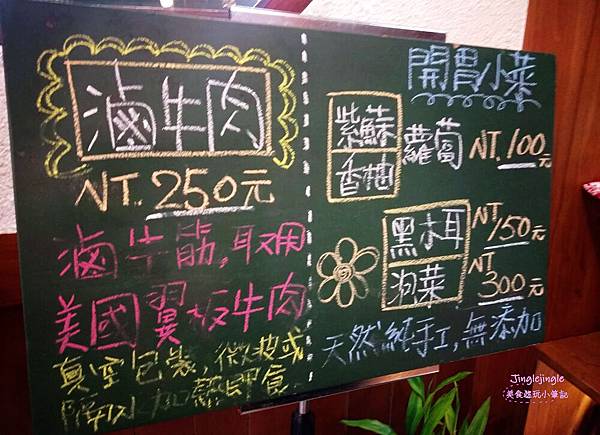 滷牛肉
NT. 250元
滷牛筋,取用
美國翼板牛肉
真空包裝,微波或
隔水加熱即食
開胃小菜
紫蘇
香柚
蘿蔔 NT. 100元
黑木耳 NT 150元
泡菜 NT 300元
天然純手工,無添加
Jinglejingle
美食遊玩小筆記